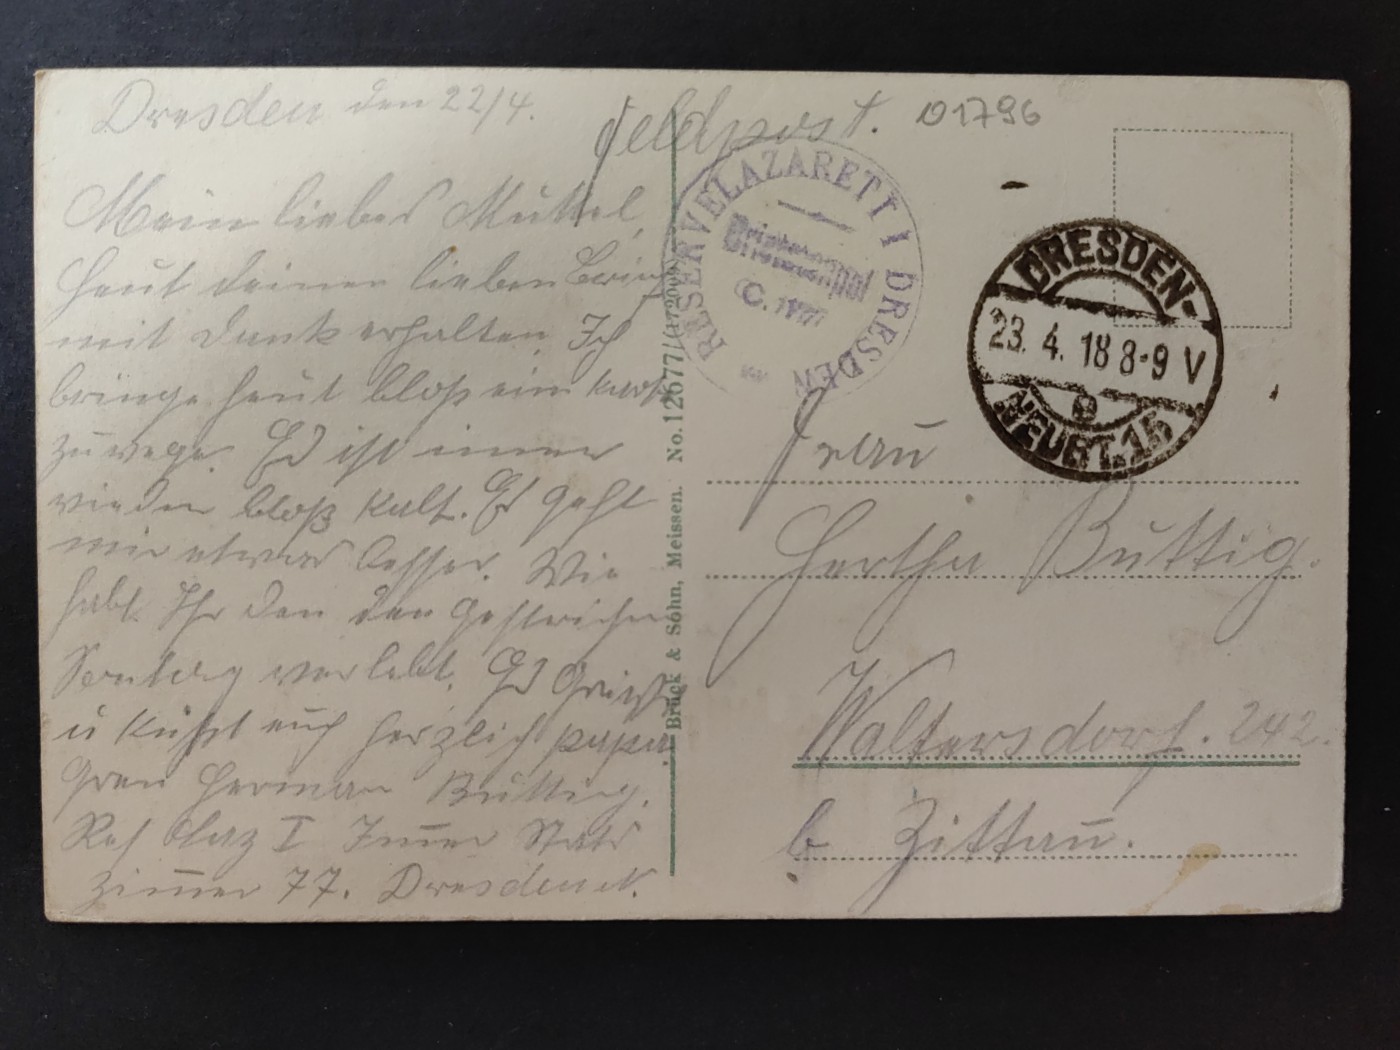 Dresden den 22/4.
Feldpost. 01796
Mein liebes Muttel,
Heut deinen lieben Brief
mit Dank erhalten. Ich
bringe heut bloß ein
zuwege. Es ist immer
wieder bloß kalt. Es geht
mir etwas besser. Wie
habt Ihr den den gestrichen
Sonntag verlebt. Es Grüßt
u Küßt euch herzlich papa
Gren Herman Buttig.
Res Laz I Inner Stat
Zimmer 77. Dresden N.
RESERVELAZARETT I DRESDEN
Briefstempel
DRESDEN-
23. 4. 18 8-9 V
e
NEUST. 15
Frau
Hertha Buttig.
Waltersdorf. 242.
b Zittau.
Brück & Sohn, Meissen. No. 12677/